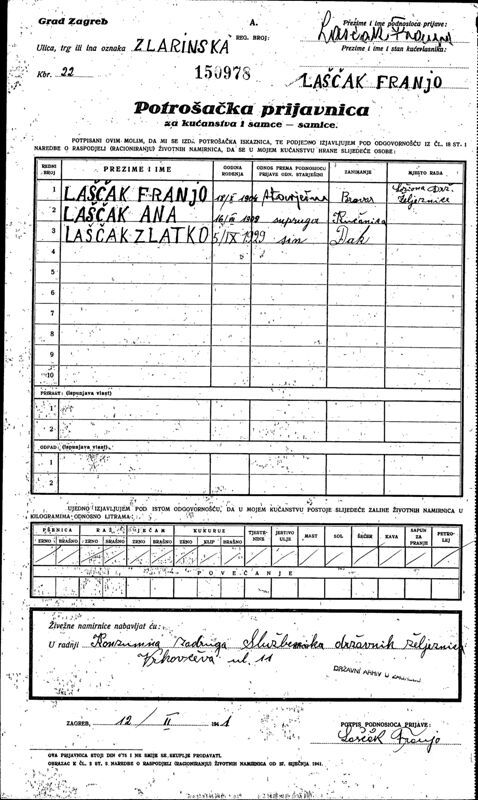 Grad Zagreb
A.
REG. BROJ:
Prezime i ime podnosioca prijave:
Laščak Franjo
Ulica, trg ili ina oznaka ZLARINSKA
Prezime i ime i stan kućevlasnika:
Kbr. 22
150978
LAŠČAK FRANJO
Potrošačka prijavnica
za kućanstva i samce — samice.
POTPISANI OVIM MOLIM, DA MI SE IZDA POTROŠAČKA ISKAZNICA, TE PODJEDNO IZJAVLJUJEM POD ODGOVORNOŠĆU IZ ČL. 18 ST. 1
NAREDBE O RASPODJELI (RACIONIRANJU) ŽIVOTNIH NAMIRNICA, DA SE U MOJEM KUĆANSTVU HRANE SLIJEDEĆE OSOBE:
REDNI BROJ PREZIME I IME GODINA ROĐENJA ODNOS PREMA PODNOSIOCU PRIJAVE ODN. STARJEŠINI ZANIMANJE MJESTO RADA
1 LAŠČAK FRANJO 1904 Bravar željeznice
2 LAŠČAK ANA 16/III 1908 supruga Kućanica
3 LAŠČAK ZLATKO 5/IX 1929 sin Đak
4
5
6
7
8
9
10
PRIRAST: (ispunjava vlast)
1
2
OTPAD: (ispunjava vlast)
1
2
UJEDNO IZJAVLJUJEM POD ISTOM ODGOVORNOŠĆU, DA U MOJEM KUĆANSTVU POSTOJE SLIJEDEĆE ZALIHE ŽIVOTNIH NAMIRNICA U
KILOGRAMIMA ODNOSNO LITRAMA:
PŠENICA RAŽ JEČAM KUKURUZ TJESTENINE JESTIVO ULJE MAST SOL ŠEĆER KAVA SAPUN ZA PRANJE PETROLEJ
ZRNO BRAŠNO ZRNO BRAŠNO ZRNO BRAŠNO ZRNO KLIP BRAŠNO
POVEĆANJE
Živežne namirnice nabavljat ću:
U radnji Konzumna zadruga Službenika državnih željeznica
Vrhovčeva ul. 11
DRŽAVNI ARHIV U ZAGREBU
ZAGREB, 12/II 1941
POTPIS PODNOSIOCA PRIJAVE:
Laščak Franjo
OVA PRIJAVNICA STOJI DIN 0'75 I NE SMIJE SE SKUPLJE PRODAVATI.
OBRAZAC K ČL. 2 ST. 2 NAREDBE O RASPODJELI (RACIONIRANJU) ŽIVOTNIH NAMIRNICA OD 27. SIJEČNJA 1941.